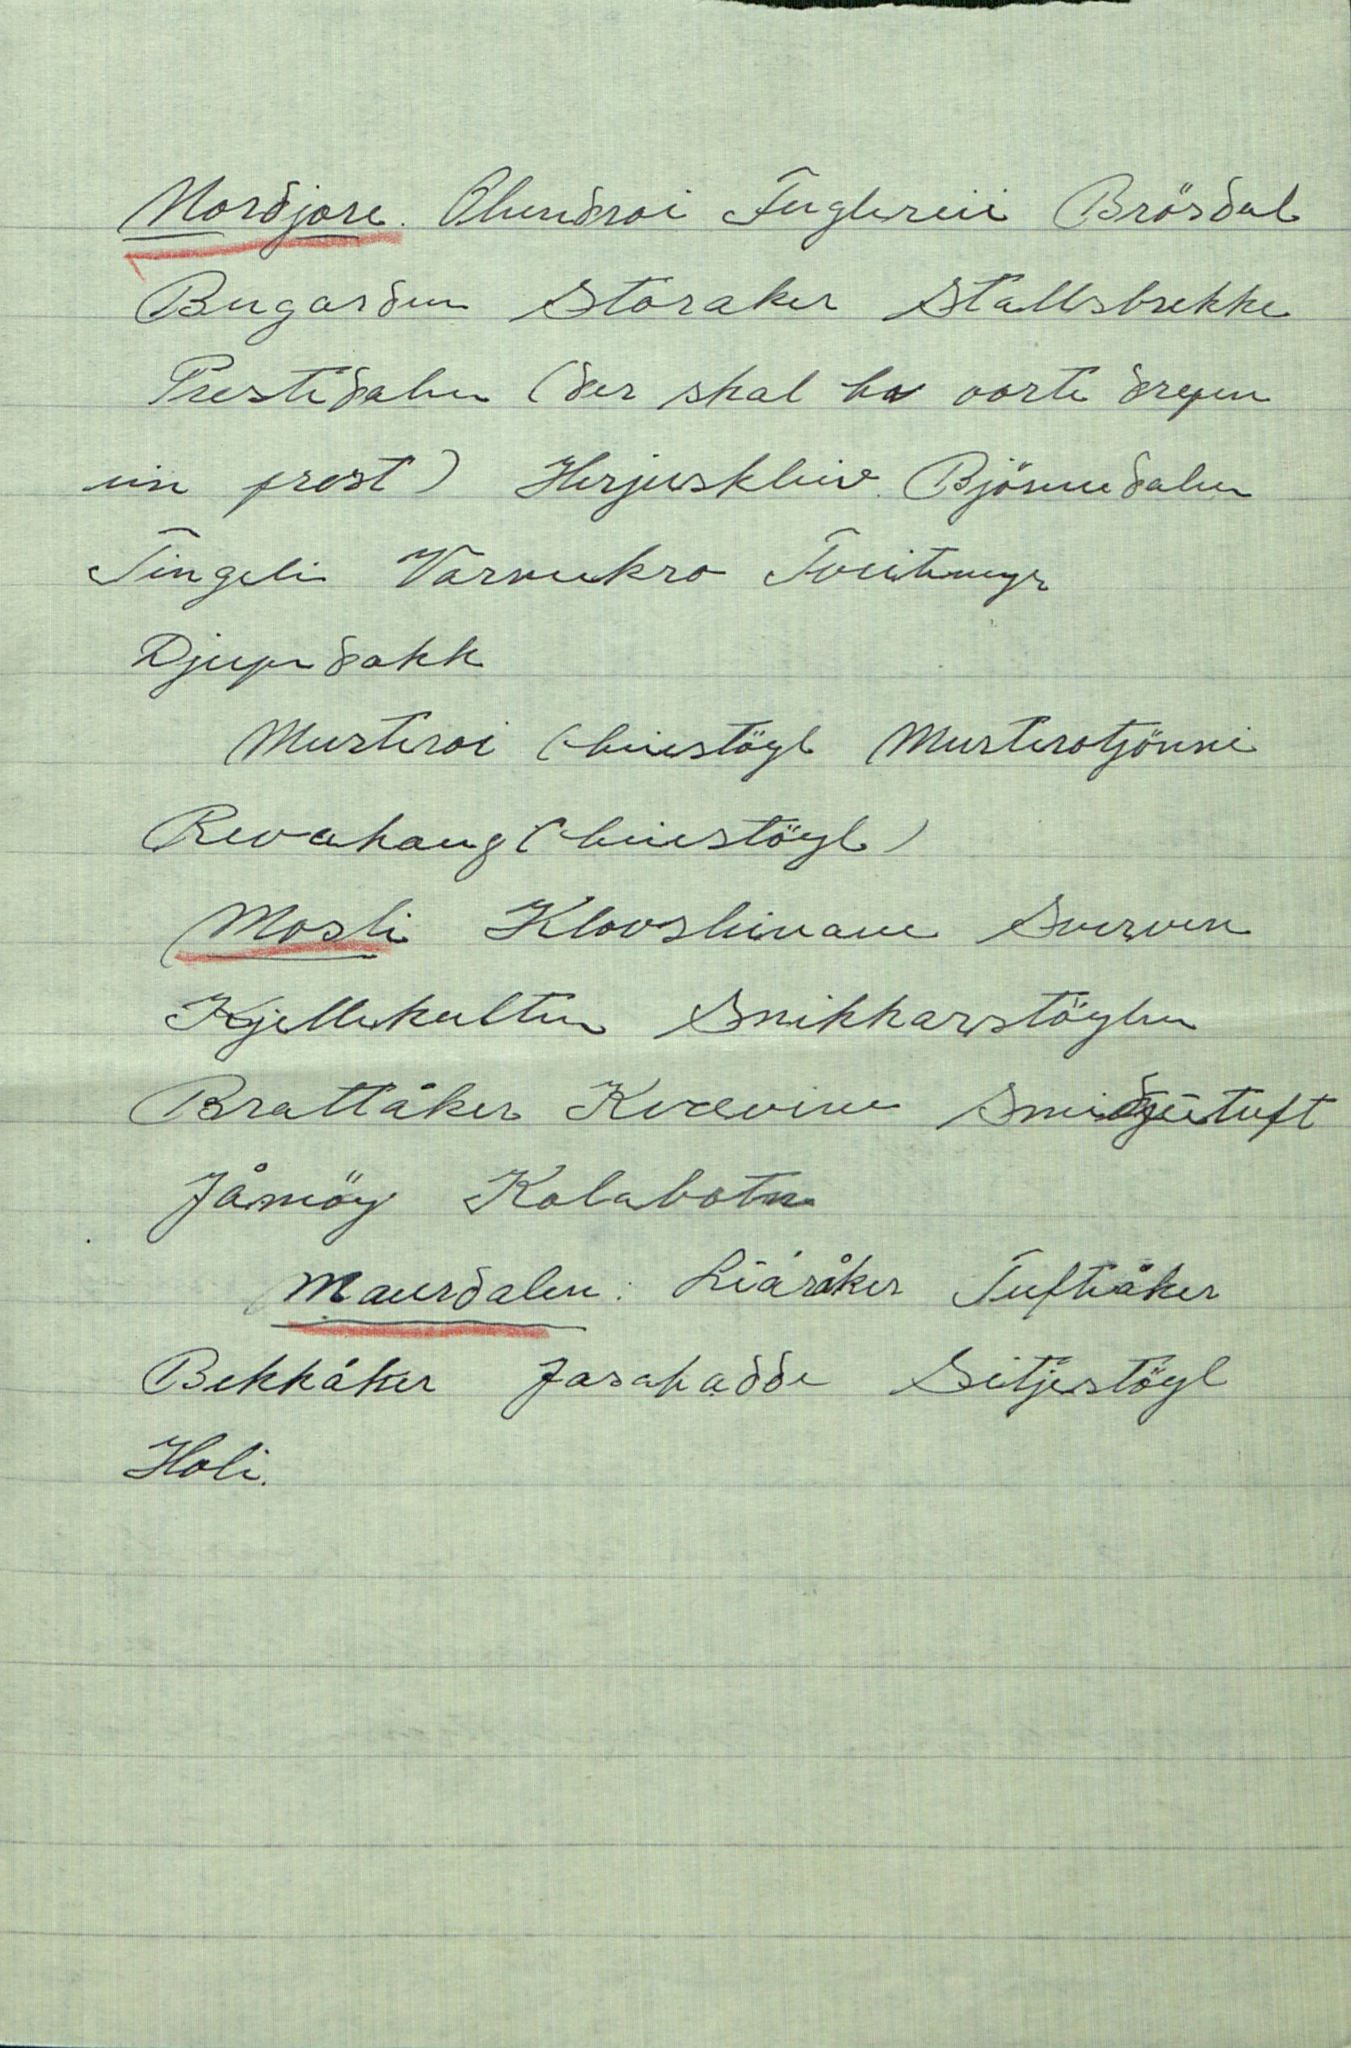 Nordjore. Olundroi Fuglereii Brösdal
Bugarden Storaker Stallsbrekke
Prestedalen (der skal ha vorte drepen
ein prest) Herjuskleiv. Björnedalen
Tingeli Varmekro Tveitemyr
Djupedokk
Musteroi (heiestöyl Musterotjönni
Revahaug (heiestöyl)
Mosli Klovsleivane Sverven
Kjellekulten Snikkarstöylen
Brattåker Kvævine Smidjutuft
Jåmöy Kolabotn
Maurdalen: Liåråker Tufteåker
Bekkåker Jarahadde Sitjestöyl
Holi.